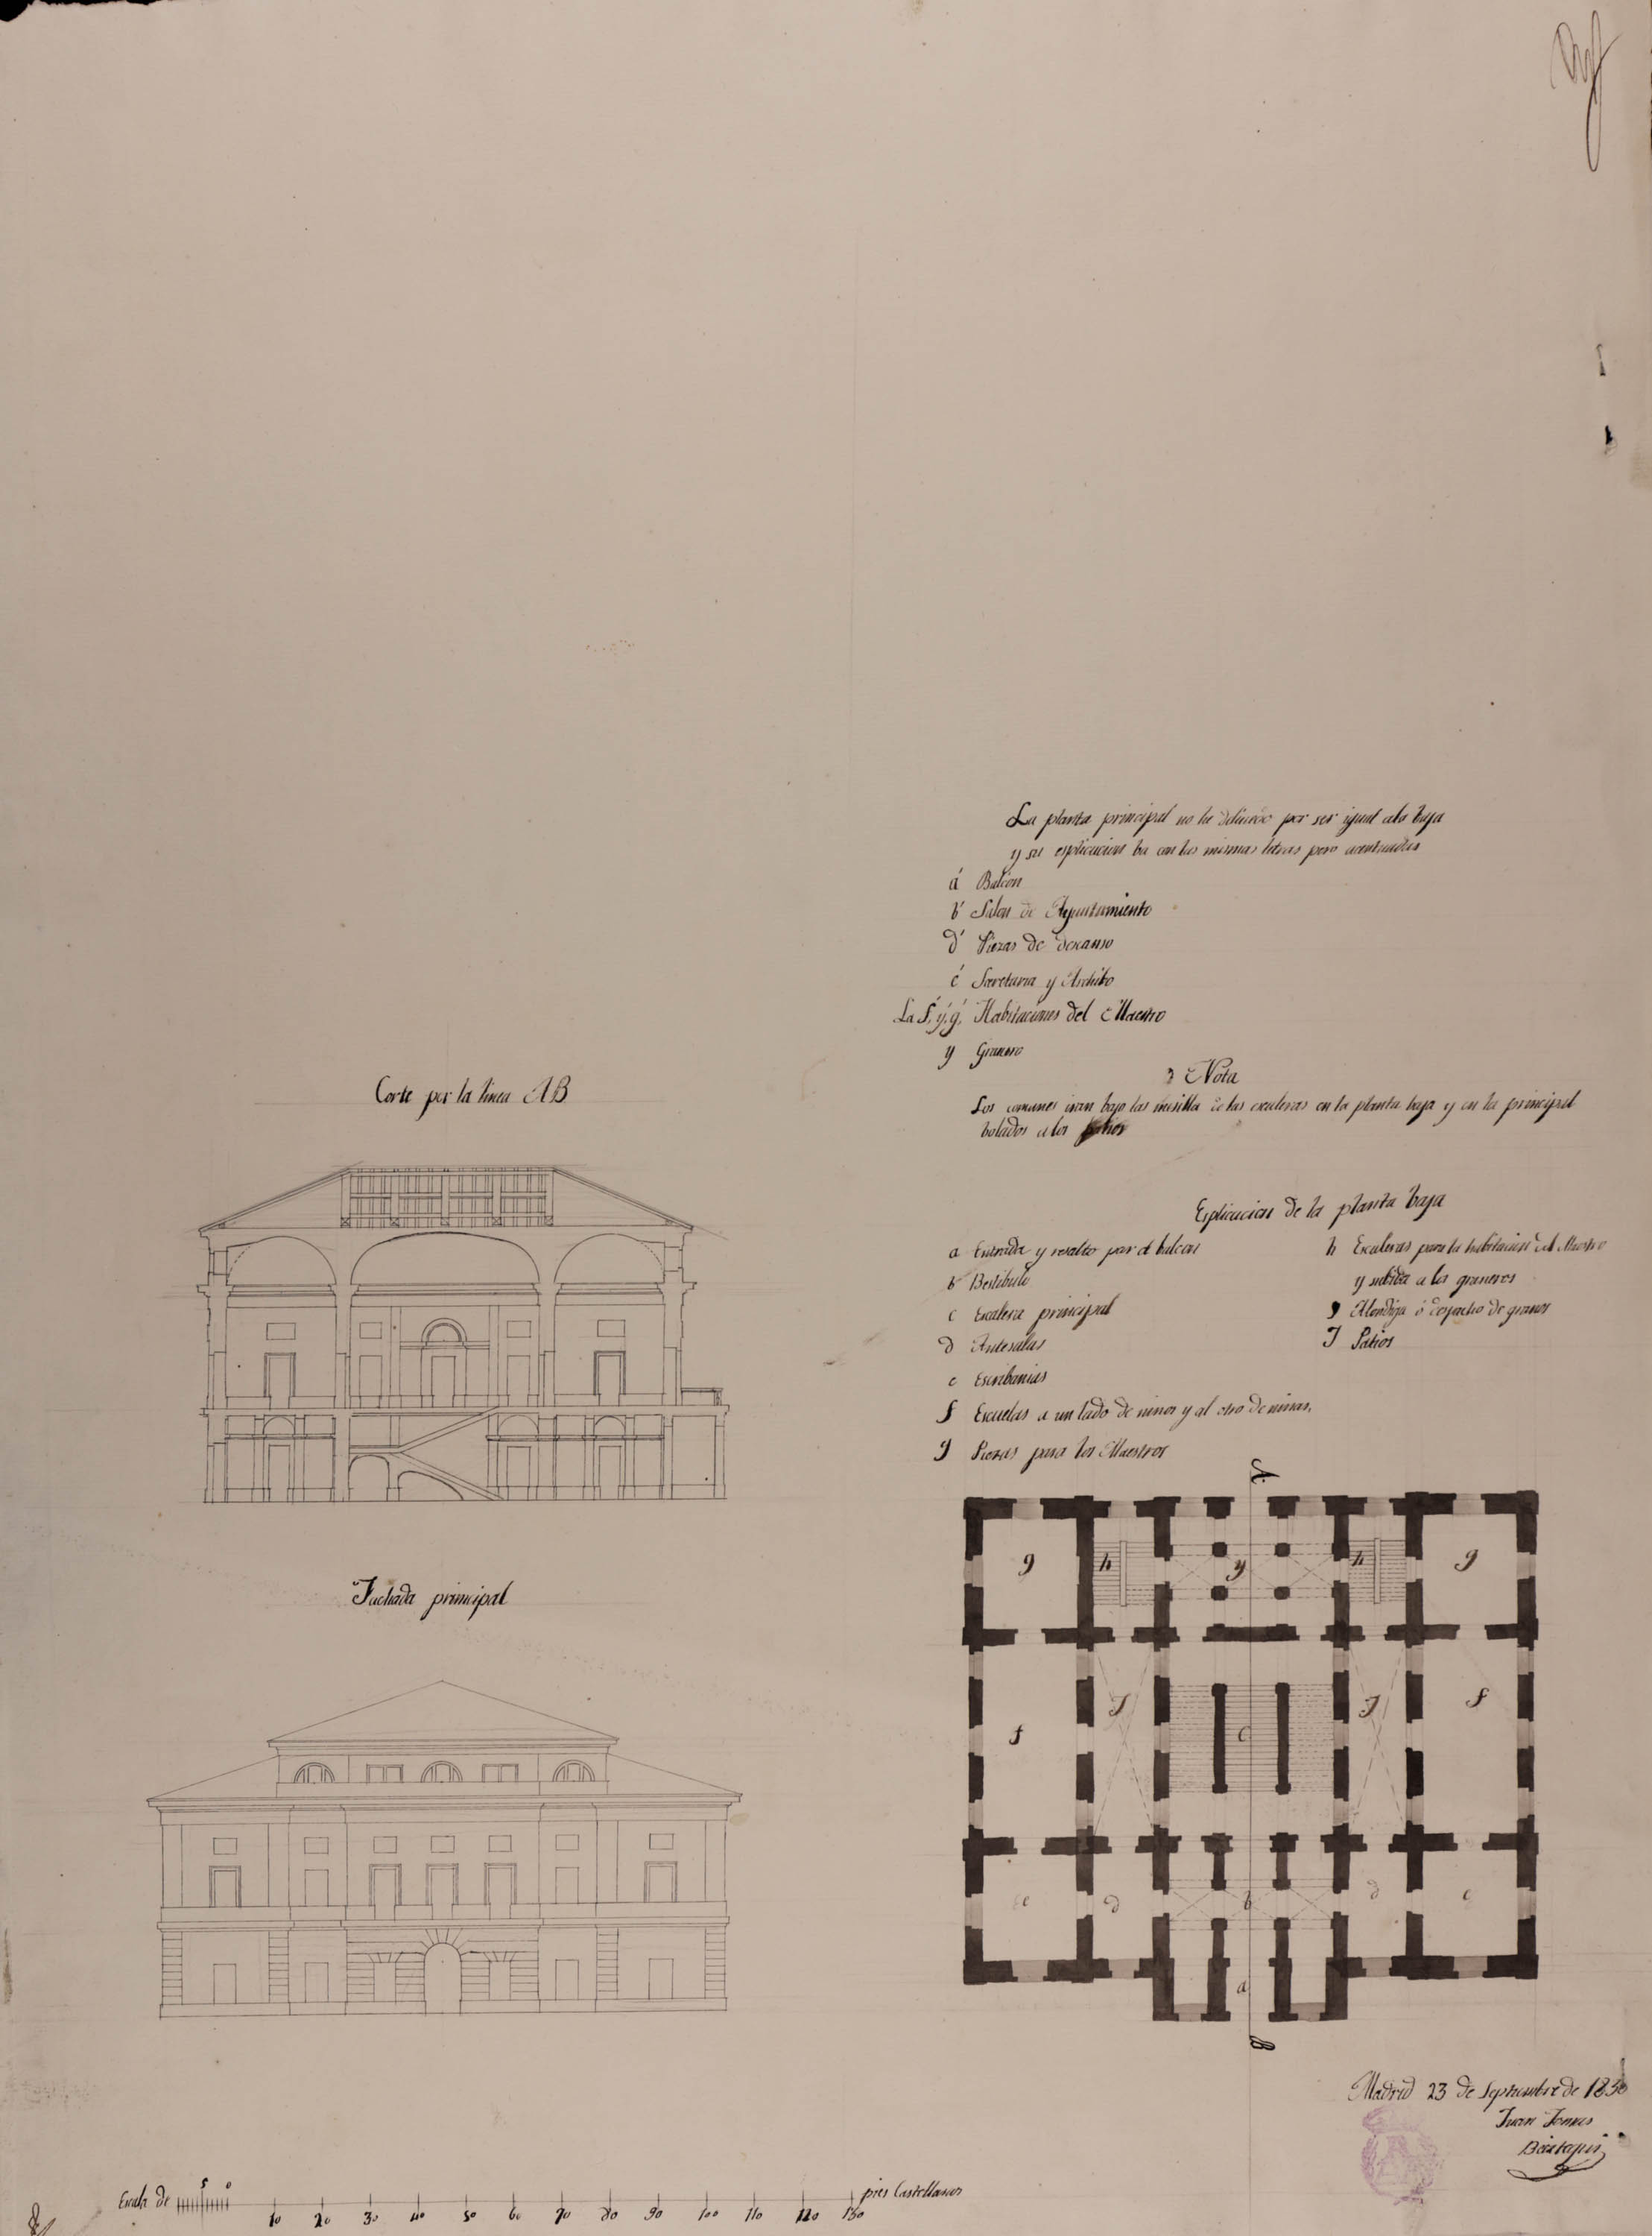 La planta principal no he delineado por ser igual ala baja
y su esplicacion ba con las mismas letras pero acentuadas
á Balcon
b́ Salon de Ayuntamiento
d́ Piezas de descanso
é Secretaria y Archibo
La f́, ý, ǵ, Habitaciones del Maestro
y Granero
Nota
Los comunes iran bajo las mesilla de las escaleras en la planta baja y en la principal
bolados a los patios
Corte por la linea AB
Esplicacion de la planta baja
a Entrada y resalto par el balcon
b Bestibulo
c Escalera principal
d Antesalas
e Escribanias
f Escuelas a un lado de niños y al otro de niñas,
g Piezas para los Maestros
h Escaleras para la habitacion del Maestro
y subida a los graneros
y Alondiga ó despacho de granos
J Patios
A
g h y h g
f J c J f
e d b d e
a
B
Fachada principal
Madrid 23 de Septiembre de 1830
Juan Tomas
Escala de 5 0 10 20 30 40 50 60 70 80 90 100 110 120 130 pies Castellanos